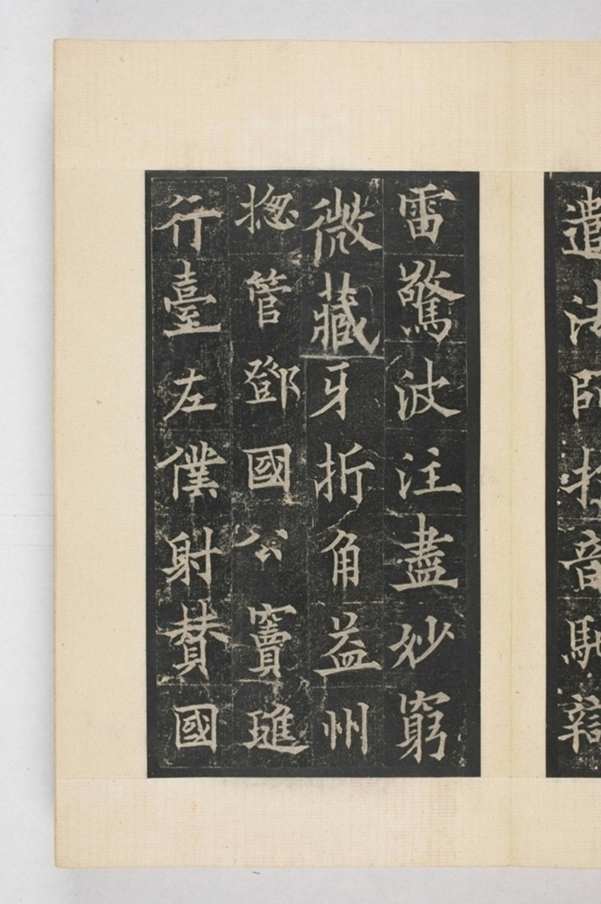 遣法師
雷驚波注盡妙窮
微藏牙折角益州
揔管鄧國公竇璡
行臺左僕射贊國